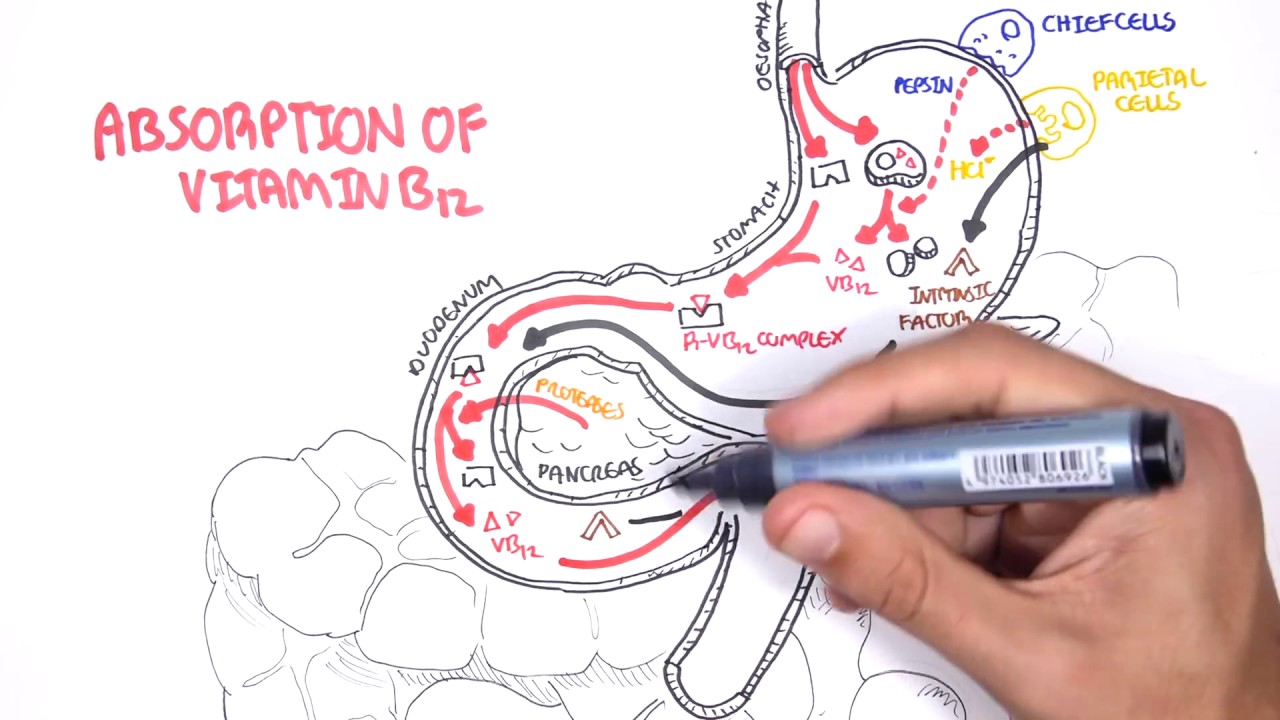 ABSORPTION OF
VITAMIN B12
OESOPHA
CHIEF CELLS
PEPSIN
PARIETAL
CELLS
HCl
STOMACH
VB12
INTRINSIC
FACTOR
DUODENUM
R-VB12 COMPLEX
PROTEASES
PANCREAS
VB12
4 974052 806926